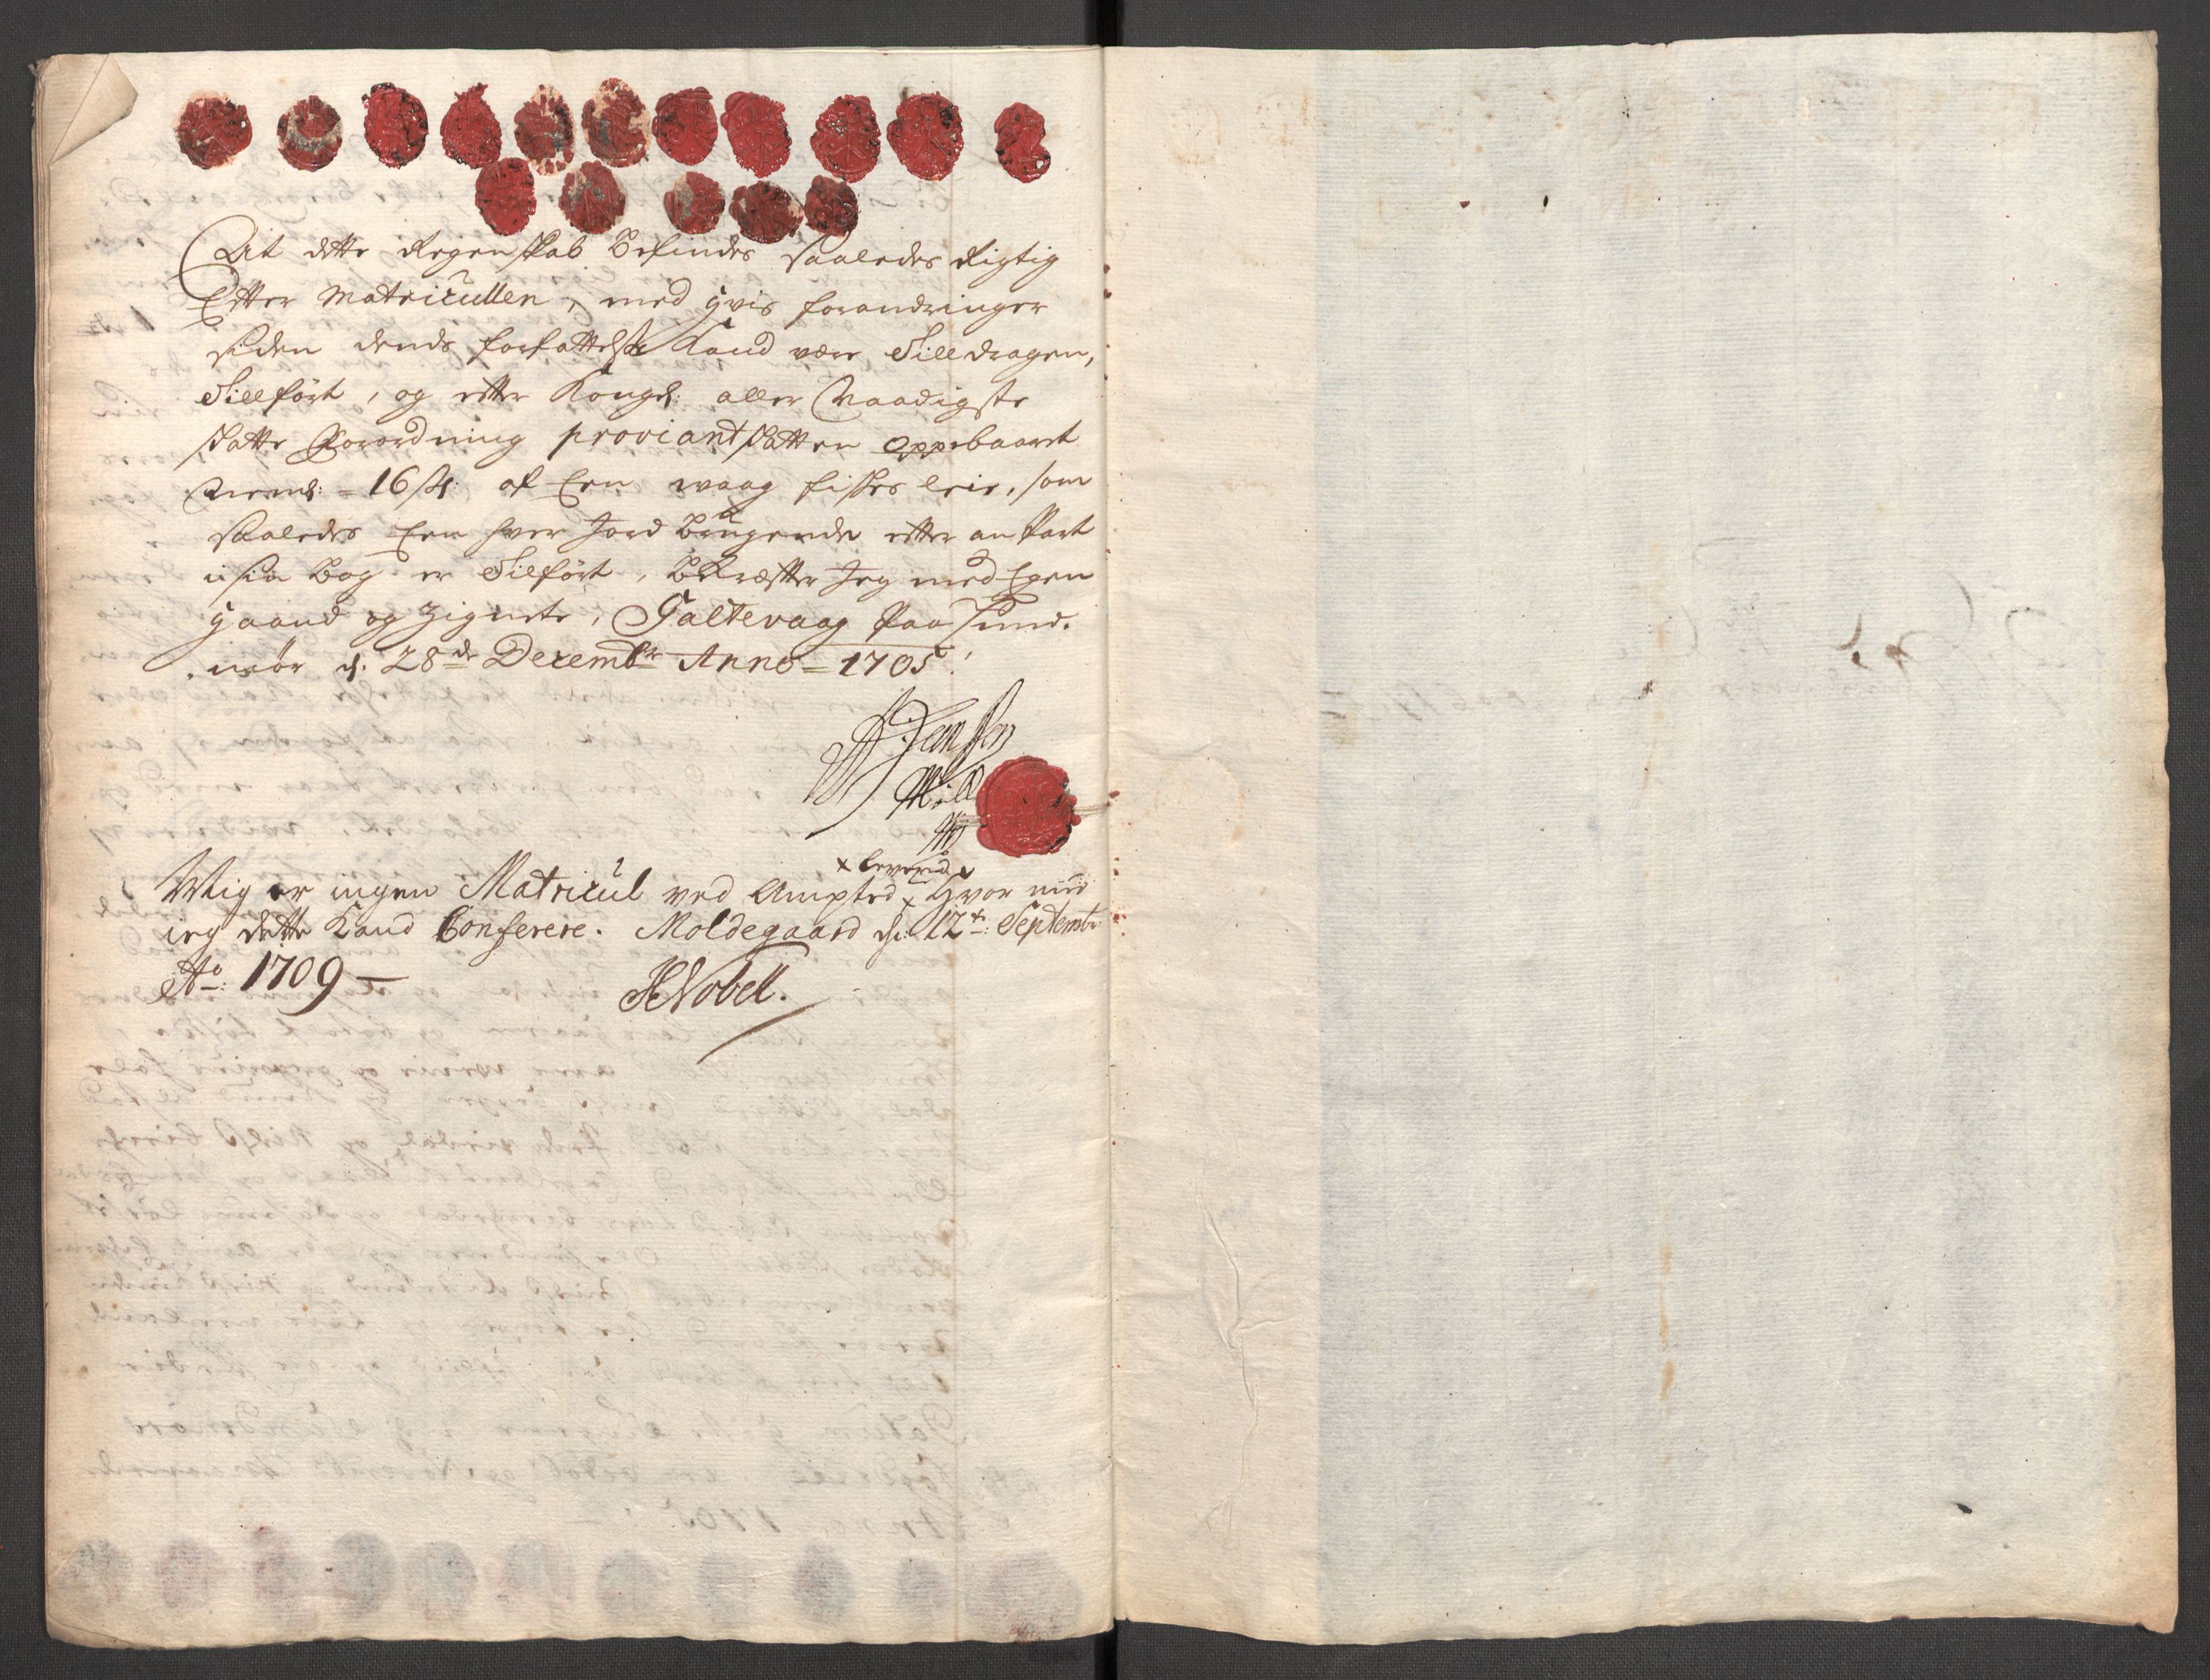 At dette Regenskab befindes saaledes Rigtig
Effter Matricullen, med hvis forandringer
siden dends forfattelse kand være Tilldragen,
Tillført, og effter Kongl: aller Naadigste
skatte Forordning proviantskatten oppebaaret
= 16 s: af Een waag fiskes leie, som
saaledes Een hver Jord brugende effter an Part
i sin bog er Tilført, bekræfter Jeg med Egen
haand og Zignete, Galtevaag paa Sund-
mør d: 28de Decembr Anno = 1705.
Jensen
Møll
Mig er ingen Matricul ved Ampted x leverid x hvor med
ieg dette kand Conferere. Moldegaard d: 12te Septembr
Ao: 1709 –
HNobell.